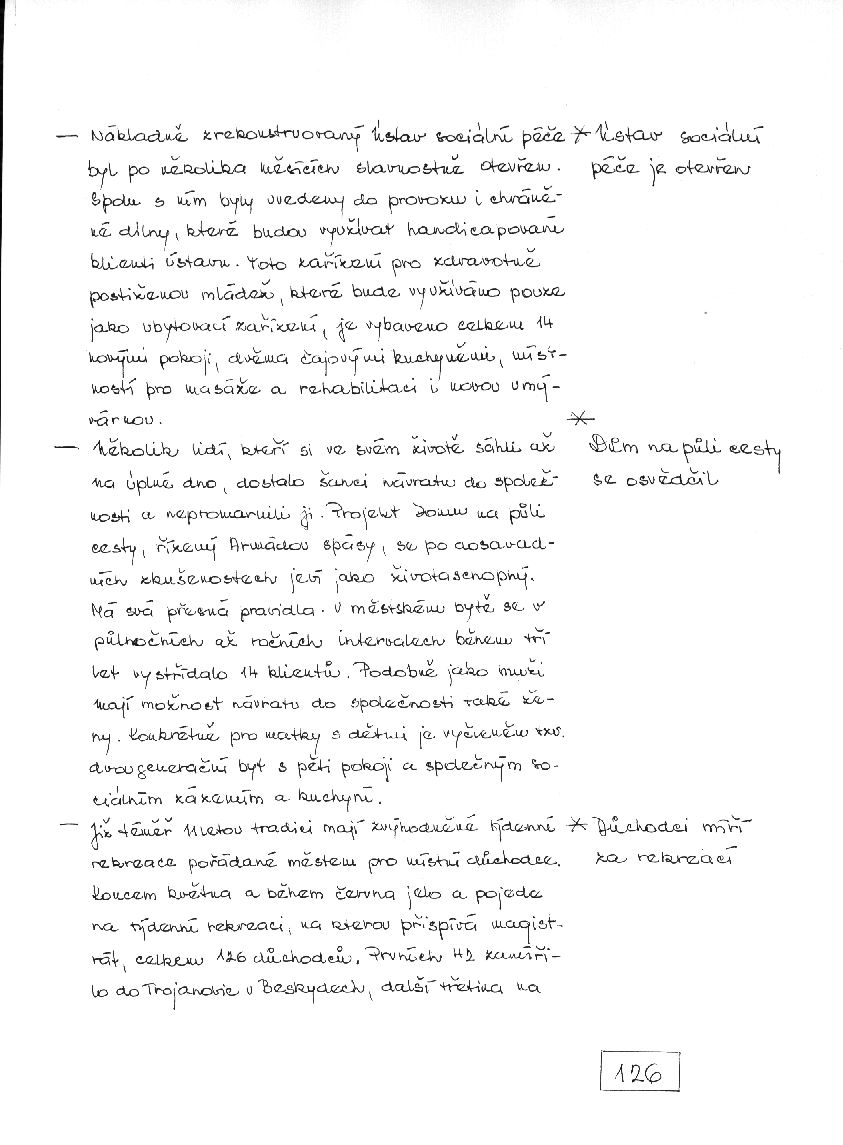 — Nákladně zrekonstruovaný Ústav sociální péče * Ústav sociální
byl po několika měsících slavnostně otevřen. péče je otevřen
Spolu s ním byly uvedeny do provozu i chráně-
né dílny, které budou využívat handicapovaní
klienti ústavu. Toto zařízení pro zdravotně
postiženou mládež, které bude využíváno pouze
jako ubytovací zařízení, je vybaveno celkem 14
novými pokoji, dvěma čajovými kuchyněmi, míst-
ností pro masáže a rehabilitaci i novou umý-
várnou. *
— Několik lidí, kteří si ve svém životě sáhli až Dům na půli cesty
na úplné dno, dostalo šanci návratu do společ- se osvědčil
nosti a nepromarnili ji. Projekt Domu na půli
cesty, řízený Armádou spásy, se po dosavad-
ních zkušenostech jeví jako životaschopný.
Má svá přesná pravidla. V městském bytě se v
půlročních až ročních intervalech během tří
let vystřídalo 14 klientů. Podobně jako muži
mají možnost návratu do společnosti také že-
ny. Konkrétně pro matky s dětmi je vyčleněn tzv.
dvougenerační byt s pěti pokoji a společným so-
ciálním zázemím a kuchyní.
— Již téměř 11letou tradici mají zvýhodněné týdenní * Důchodci míří
rekreace pořádané městem pro místní důchodce. za rekreací
Koncem května a během června jelo a pojede
na týdenní rekreaci, na kterou přispívá magist-
rát, celkem 126 důchodců. Prvních 42 zamíři-
lo do Trojanovic v Beskydech, další třetina na
126